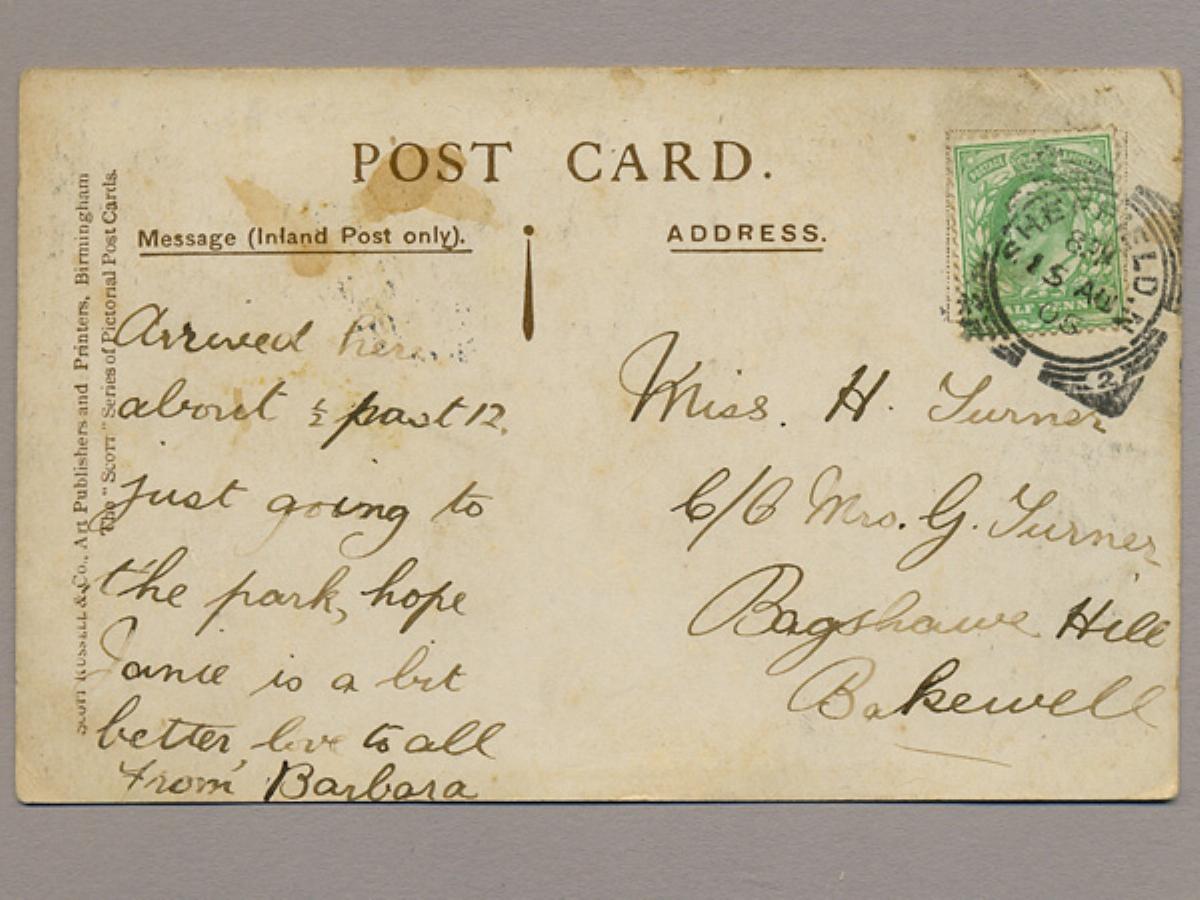 POST CARD.
Message (Inland Post only).
ADDRESS.
Scott Russell & Co., Art Publishers and Printers, Birmingham
The "Scott" Series of Pictorial Post Cards.
Arrived here
about ½ past 12.
just going to
the park, hope
Janie is a bit
better, love to all
from Barbara
Miss. H. Turner
C/O Mrs. G. Turner
Bagshawe Hill
Bakewell
SHEFFIELD. N
15 AU
2
HALFPENNY
POSTAGE